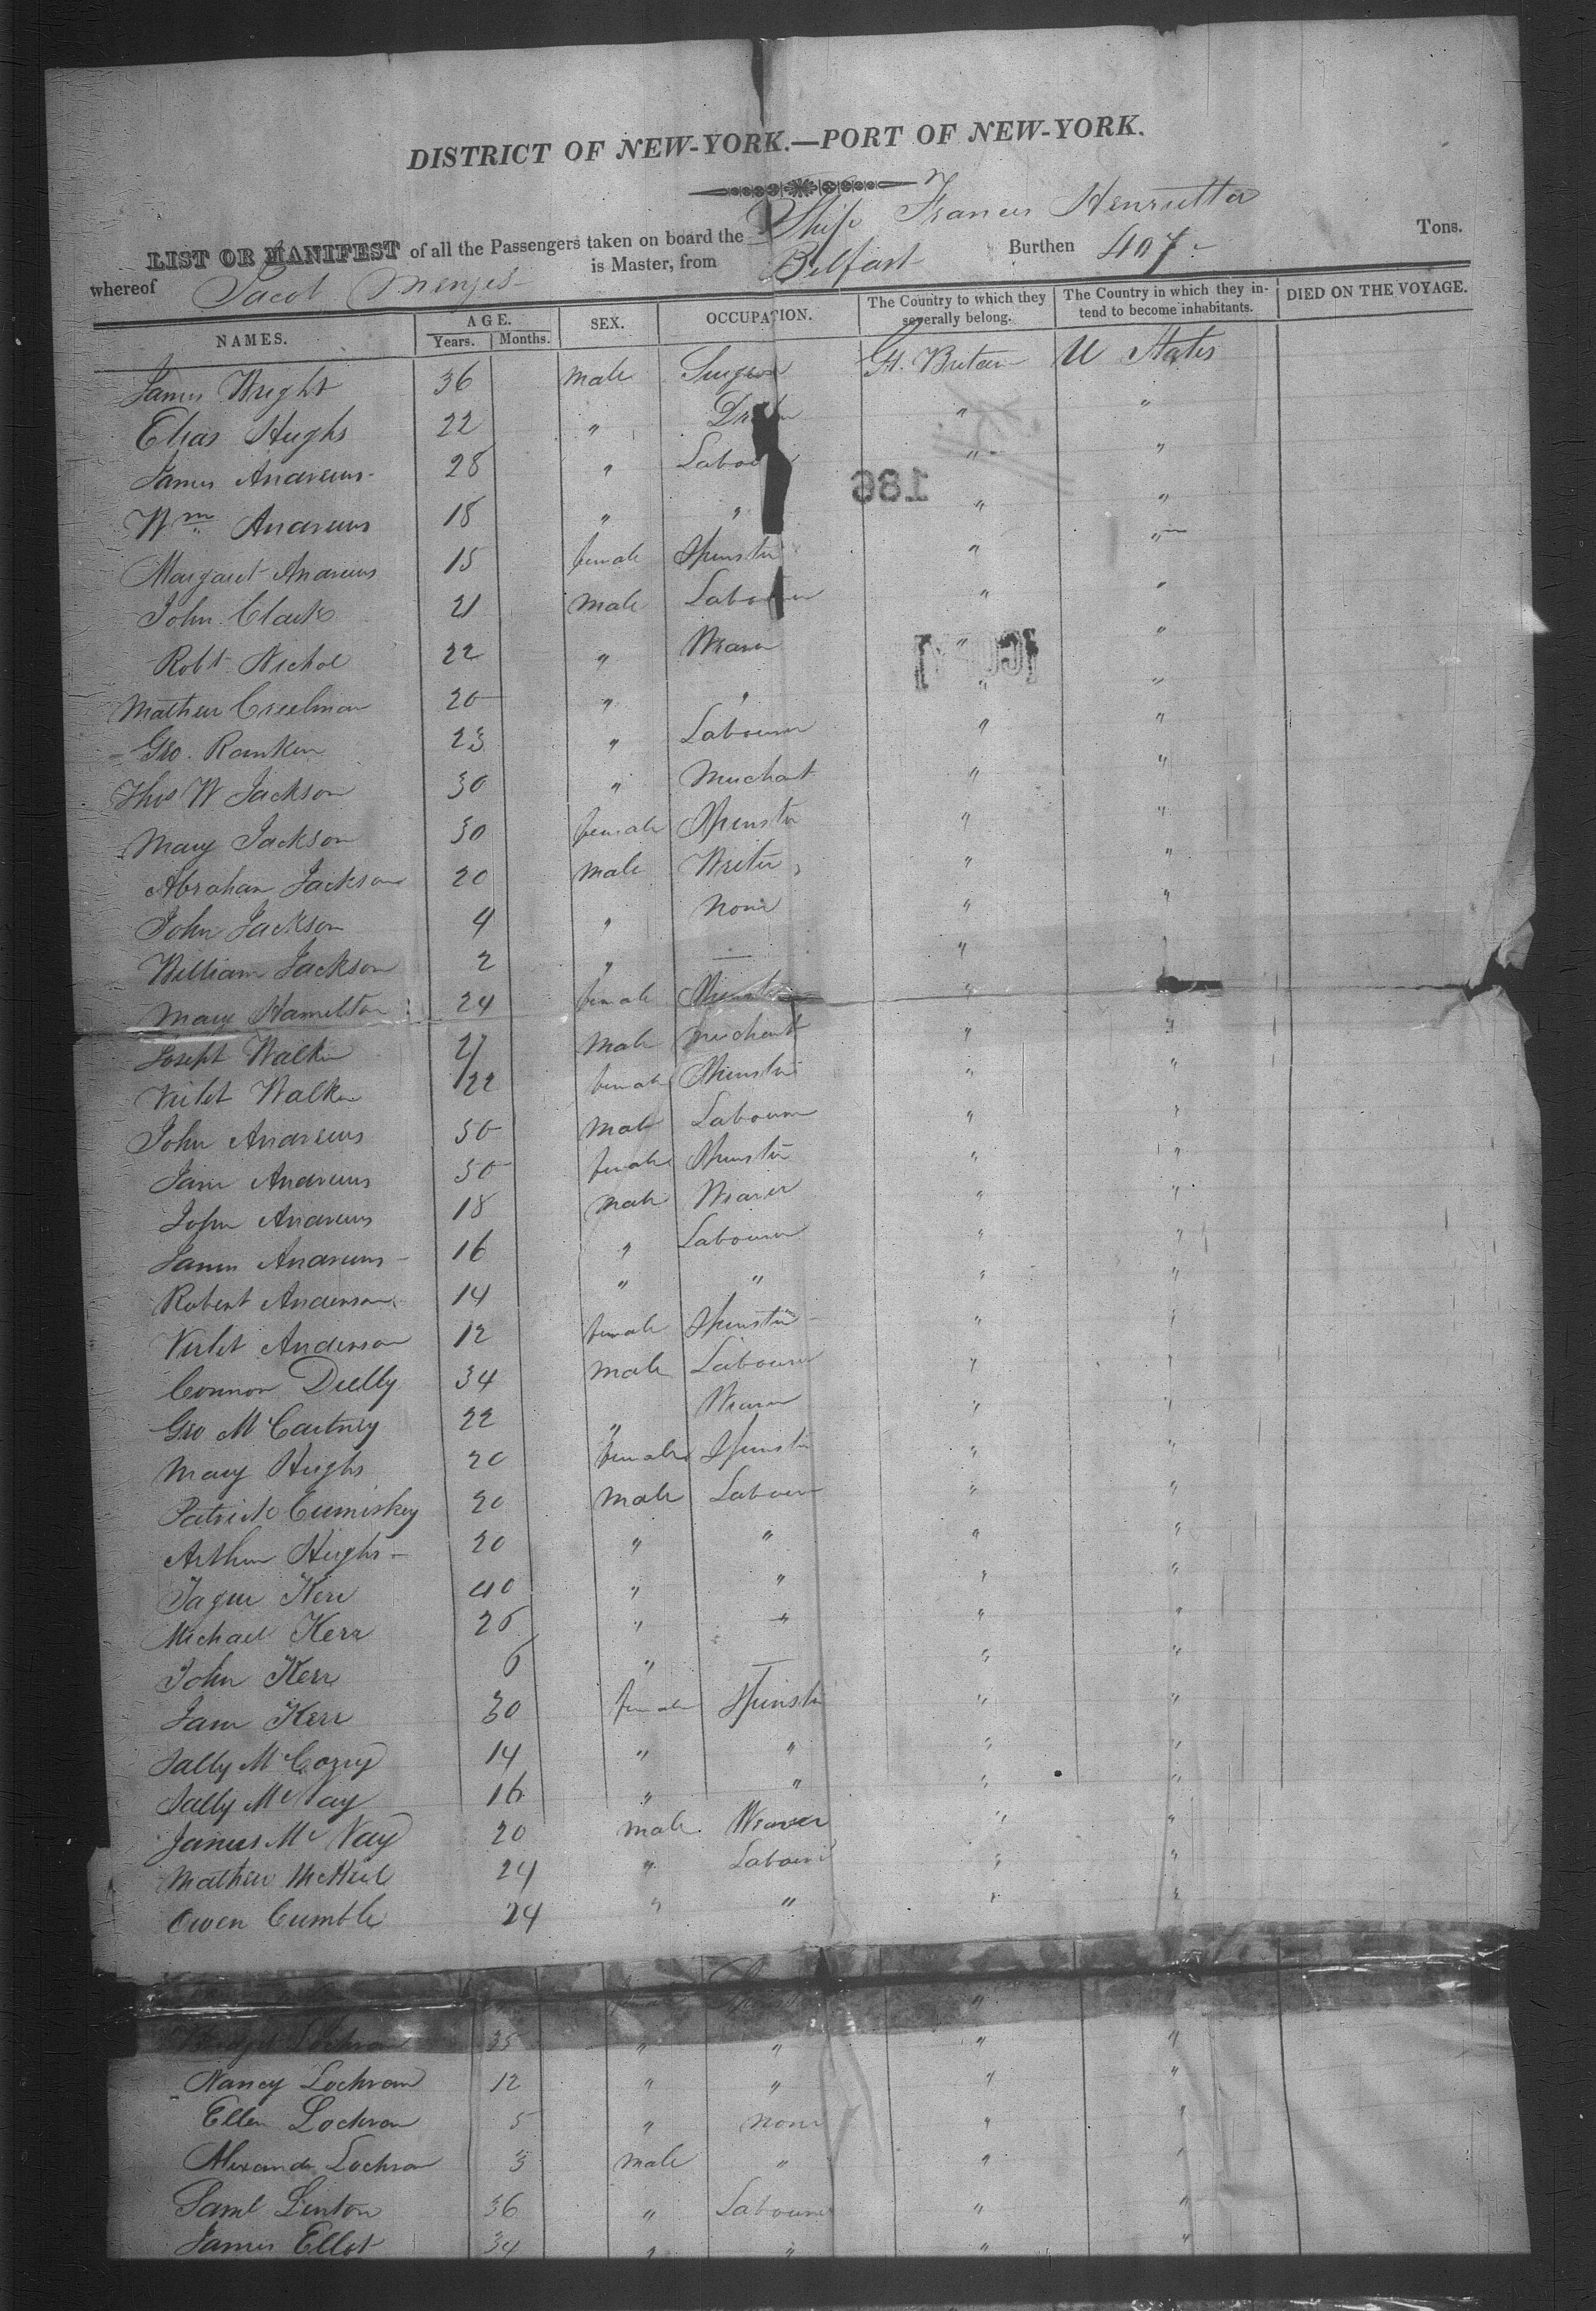 DISTRICT OF NEW-YORK.—PORT OF NEW-YORK.
LIST OR MANIFEST of all the Passengers taken on board the Ship Frances Henrietta
whereof Jacob Menzes is Master, from Belfast Burthen 407 Tons.
NAMES. AGE. Years. Months. SEX. OCCUPATION. The Country to which they severally belong. The Country in which they intend to become inhabitants. DIED ON THE VOYAGE.
James Wright 36 male Surgeon Gt. Britain U States
Elias Hughs 22 " " "
James Andrews 28 " " "
Wm Andrews 18 " " " "
186
Margaret Andrews 15 female Spinster " "
John Clark 21 male Labourer " "
Robt Nichol 22 " Weaver " "
Mathew Creelman 20 " " " "
Geo. Rankin 23 " Labourer " "
Thos W Jackson 30 " Merchant " "
Mary Jackson 30 female Spinster " "
Abraham Jackson 20 male Writer " "
John Jackson 4 " none " "
William Jackson 2 " — "
Mary Hamelton 24 female Spinster "
Joseph Walker 21 male merchant " "
Violet Walker 22 female Spinster " "
John Andrews 50 male Labourer " "
Jane Andrews 50 female Spinster " "
John Andrews 18 male Weaver " "
James Andrews 16 " Labourer " "
Robert Anderson 14 " " " "
Violet Anderson 12 female Spinster " "
Connor Duffy 34 male Labourer " "
Geo McCartney 22 " Weaver " "
Mary Hughs 20 female Spinster " "
Patrick Cumiskey 20 male Labourer " "
Arthur Hughs 20 " " " "
Kerr 40 " " " "
Michael Kerr 26 " " " "
John Kerr 6 " — " "
Jane Kerr 30 female Spinster " "
Sally 14 " " " "
Sally 16 " " " "
James McVay 20 male Weaver " "
Mathew McNeil 24 " Labourer " "
Owen Cumble 24 " " " "
Bridget Lochran 35 " " " "
Nancy Lochran 12 " " " "
Ellen Lochran 5 " none " "
Alexander Lochran 3 male " " "
Saml Linton 36 " Labourer " "
James Ellot 34 " " " "